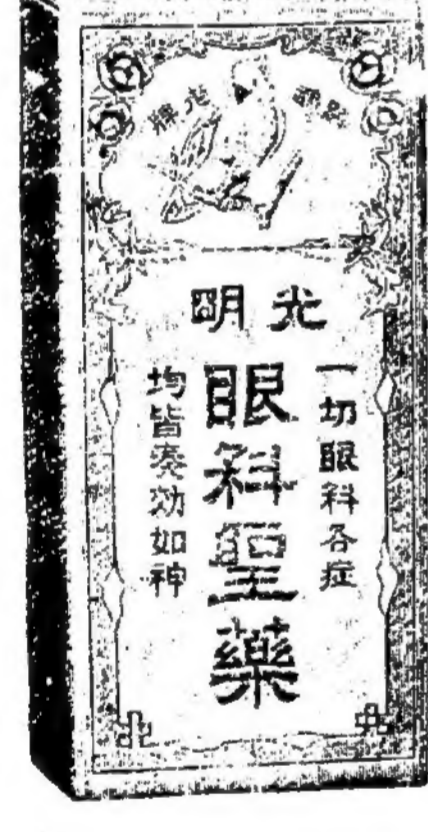 光明
一切眼科各症
眼科聖藥
均皆奏効如神